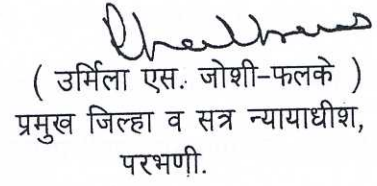 ( उर्मिला एस. जोशी-फलके )
प्रमुख जिल्हा व सत्र न्यायाधीश,
परभणी.